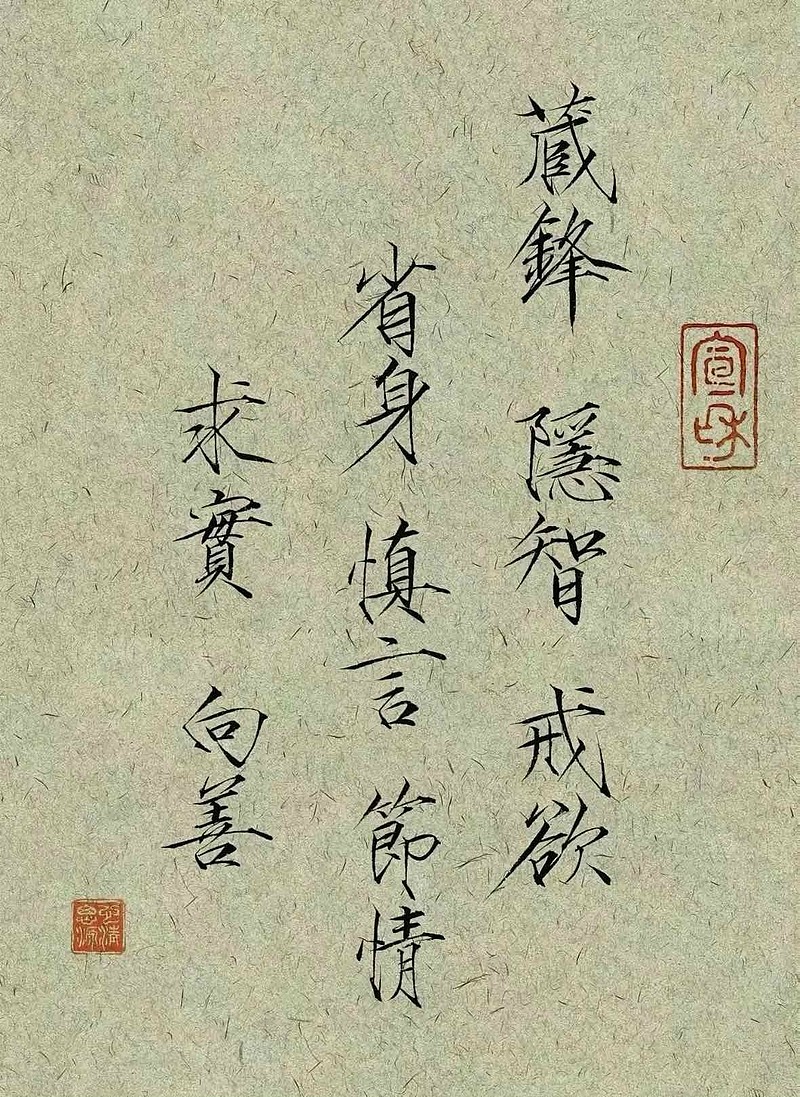 宣和
蔵鋒 隱智 戒欲
省身 慎言 節情
求實 向善